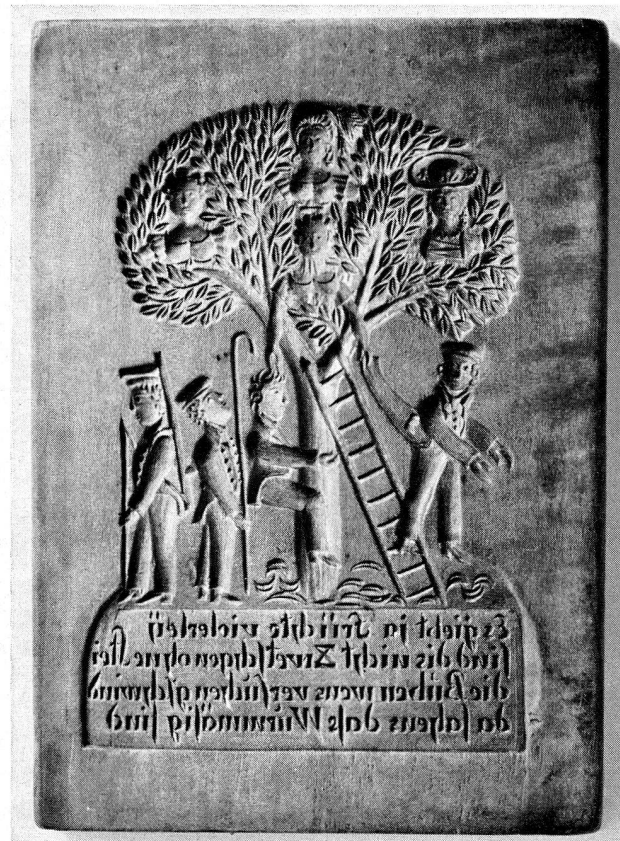 Es giebt ja Früchte vielerleÿ
sind dis nicht Zwetschgen ohne stei
die Büben wens versuhen gschwind
da sahens dass Wurmmäsig sind